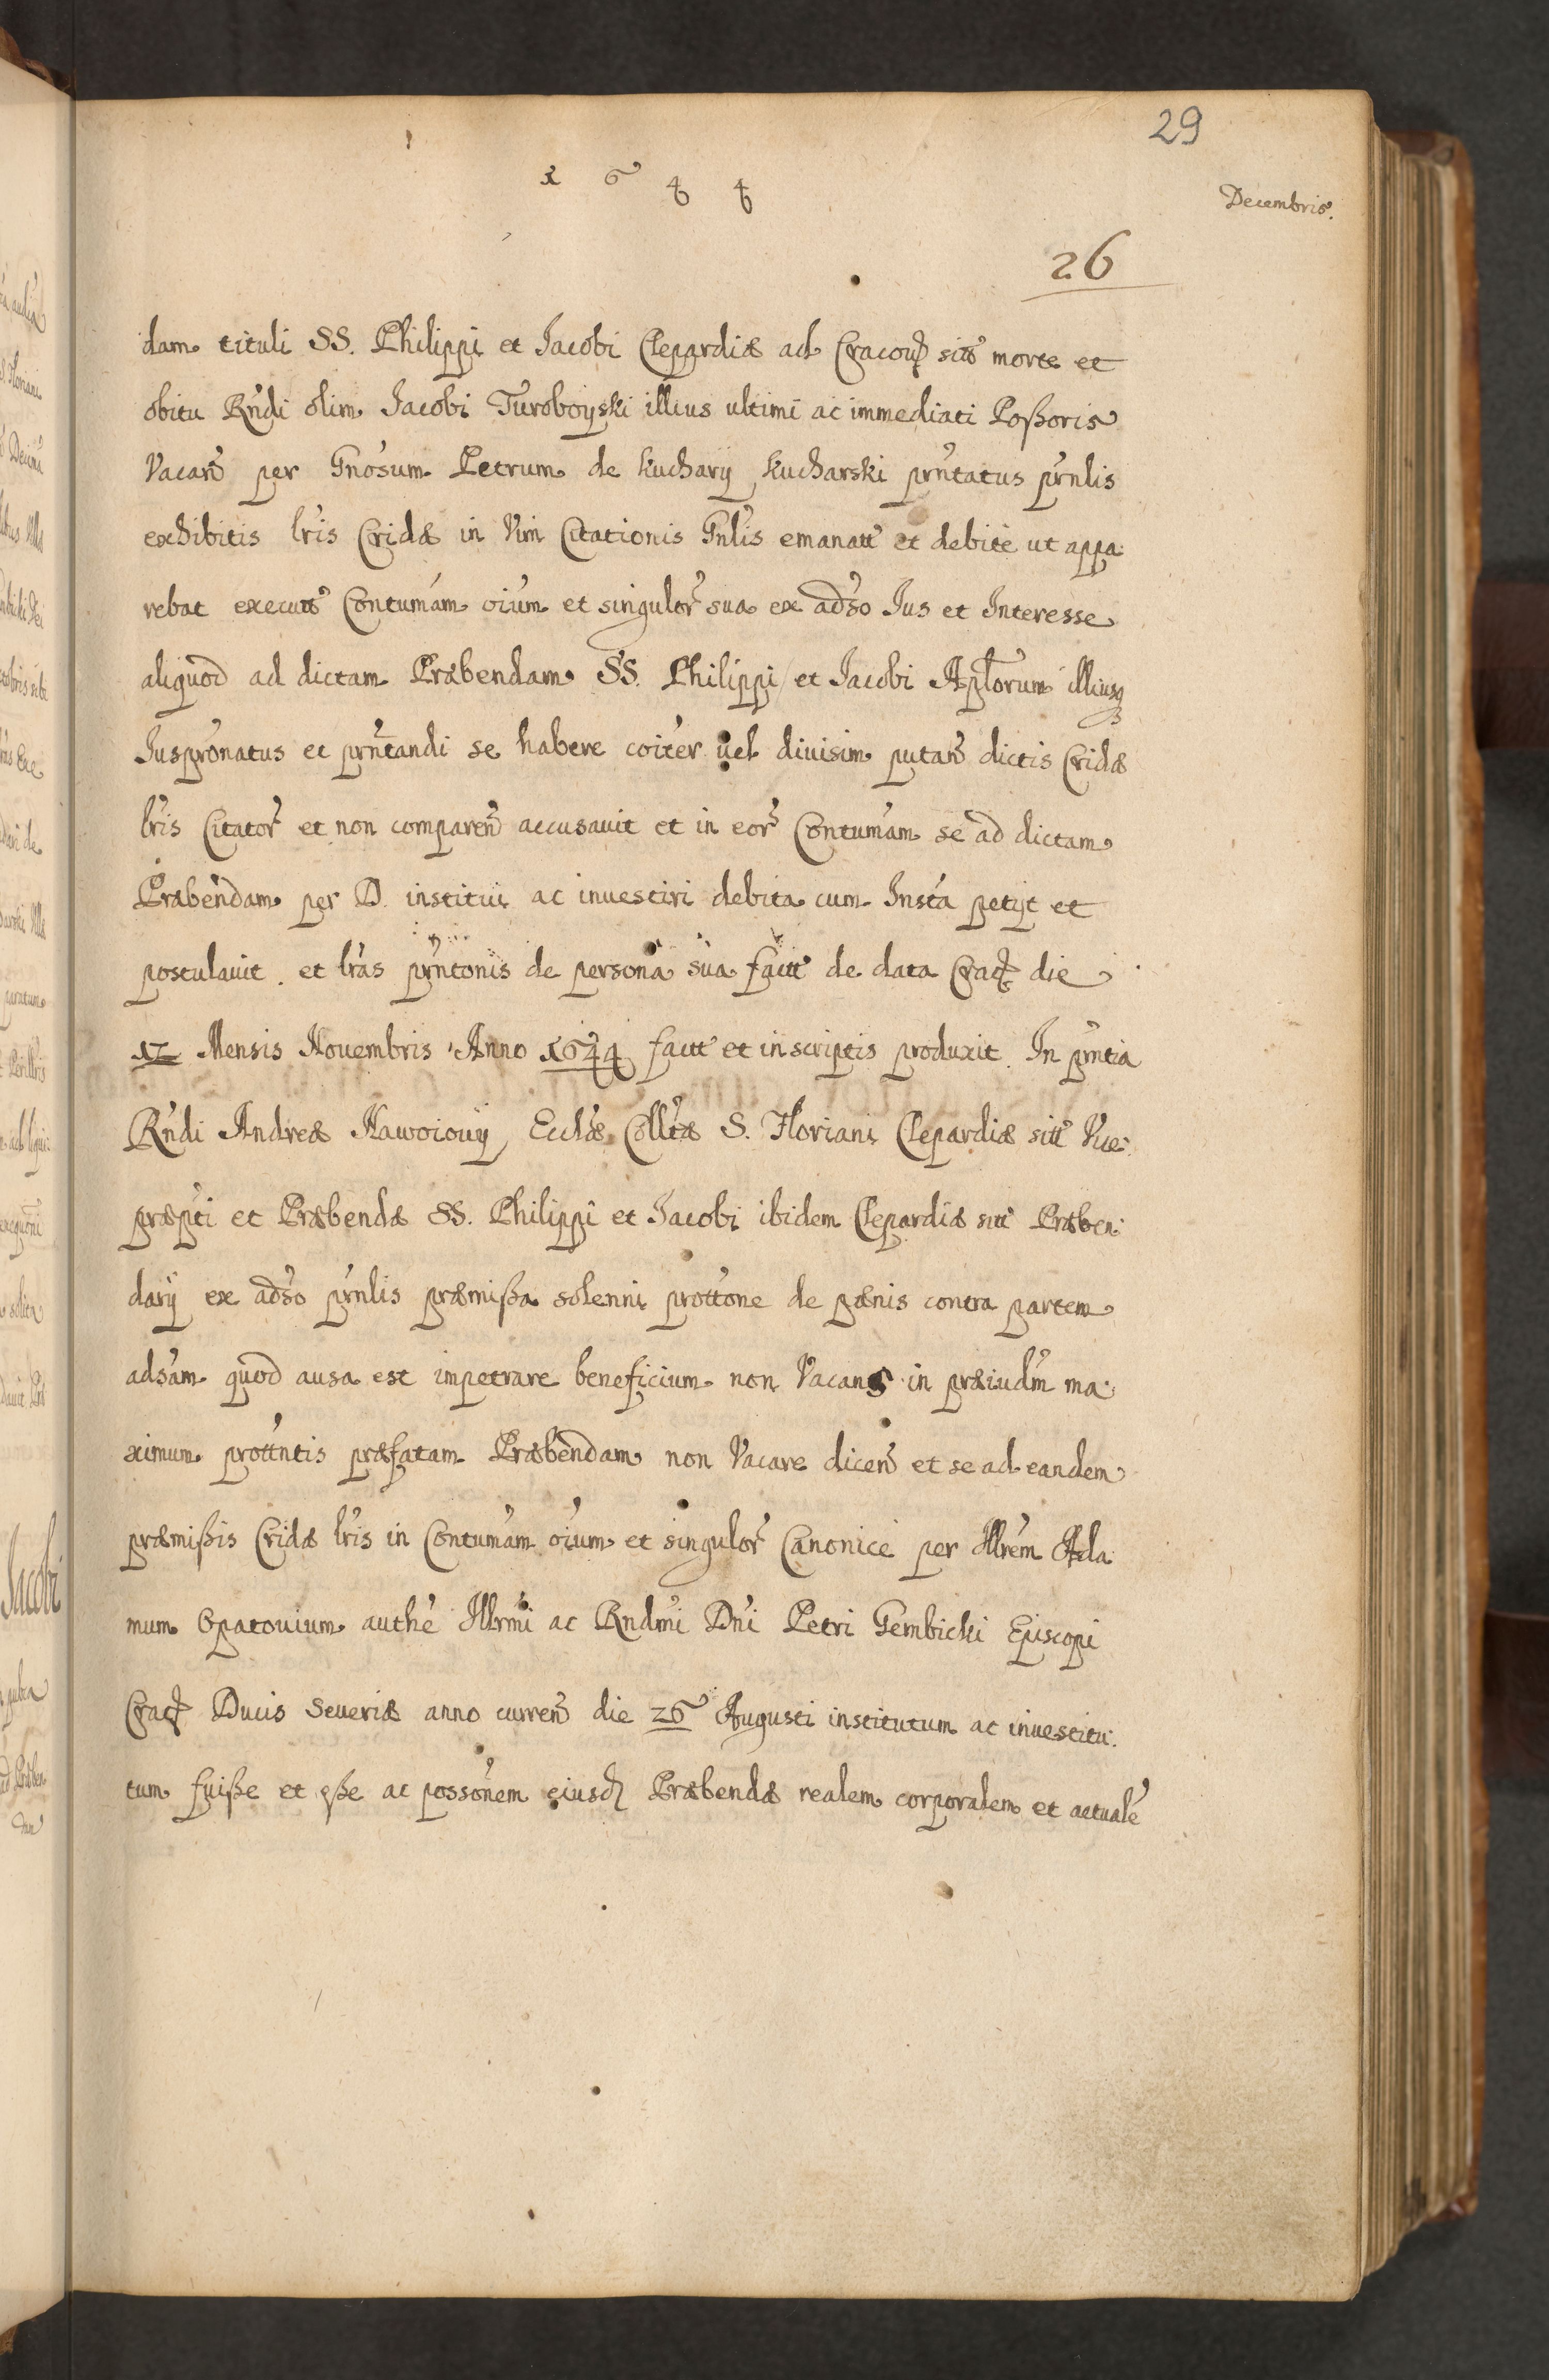 29
1 6 4 4
Decembris.
26
dam tituli SS. Philippi et Jacobi Clepardiæ ad Cracou sitt morte et
obitu Rndi olim Jacobi Turoboyski illius ultimi ac immediati Poßoris
Vacan per Gnosum Petrum de Kuchary Kucharski prntatus prnlis
exhibitis lris Cridæ in Vim Citationis Gnlis emanatt et debite ut appa:
rebat executt Contumam oium et singulor sua ex adso Jus et Interesse
aliquod ad dictam Præbendam SS. Philippi et Jacobi Aplorum illiusq
Juspronatus et prntandi se habere coiter uel diuisim putan dictis Cridæ
lris Citator et non comparen accusauit et in eor Contumam se ad dictam
Præbendam per D. institui ac inuestiri debita cum Insta petyt et
postulauit. et lras prntonis de persona sua factt de data Crac die
17 Mensis Nouembris Anno 1644 factt et in scriptis produxit. In prntia
Rndi Andreæ Nawoiouy Ecclæ Colltæ S. Floriani Clepardiæ sitt Vice:
præpti et Præbendæ SS. Philippi et Jacobi ibidem Clepardiæ sitt Præben:
dary ex adso prnlis præmißa solenni prottone de pænis contra partem
adsam quod ausa est impetrare beneficium non Vacans in præiudm ma:
ximum prottntis præfatam Præbendam non Vacare dicen et se ad eandem
præmißis Cridæ lris in Contumam oium et singulor Canonice per Illrem Ada
mum Opatouium authe Illrmi ac Rndmi Dni Petri Gembicki Episcopi
Crac Ducis Seueriæ anno curren die 26 Augusti institutum ac inuestitu:
tum fuiße et eße ac possonem eiusd Præbendæ realem corporalem et actuale